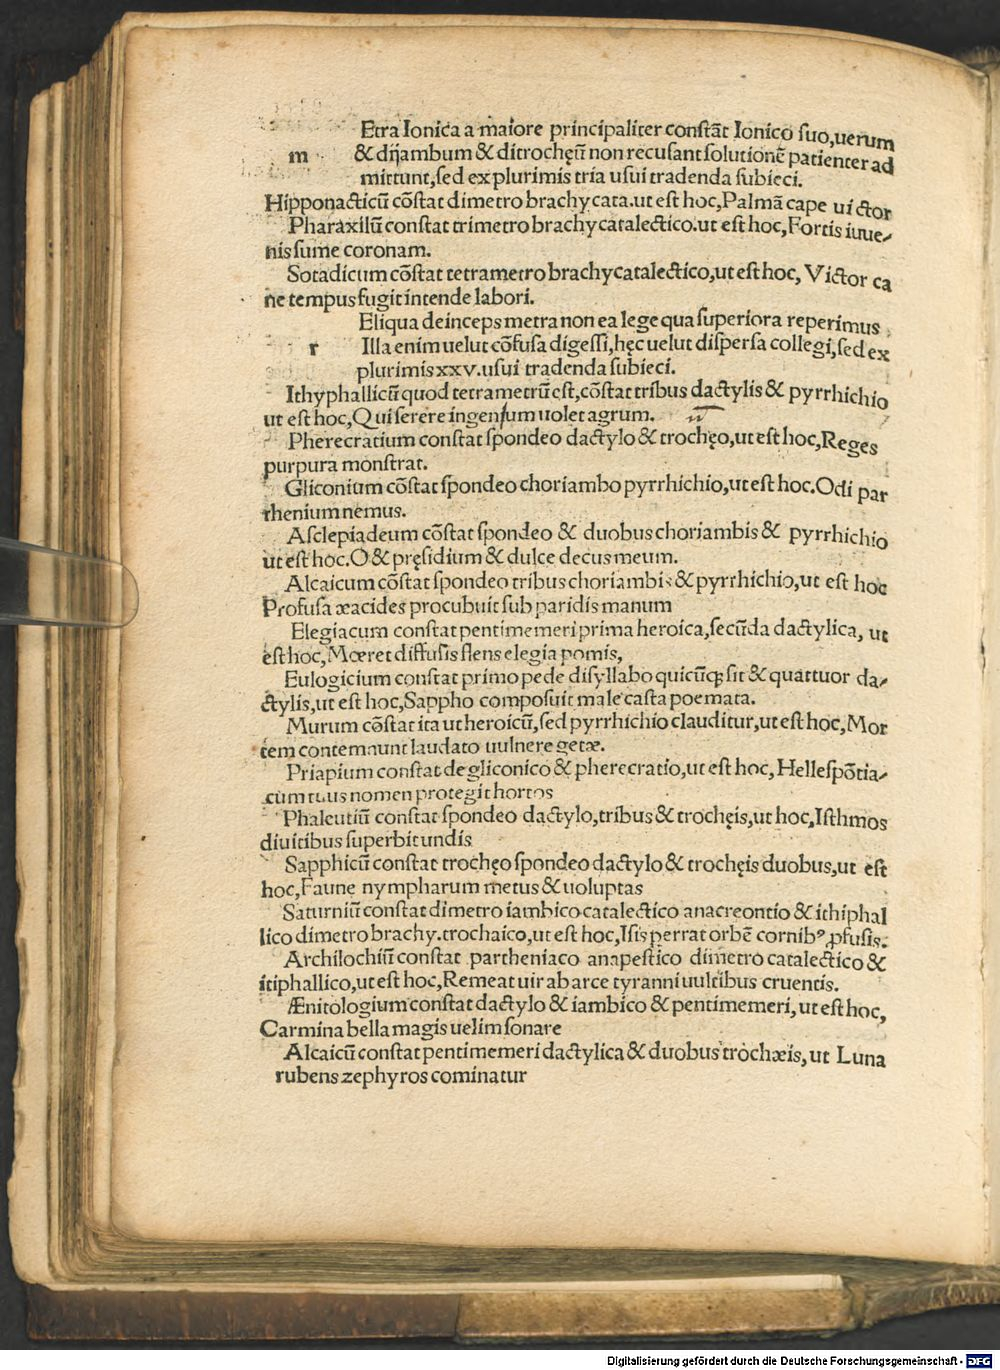 Etra Ionica a maiore principaliter constāt Ionico suo, uerum
m & diiambum & ditrochęū non recusant solutionē patienter ad
mittunt, sed ex plurimis tria usui tradenda subieci.
Hipponacticū cōstat dimetro brachy cata. ut est hoc, Palmā cape uictor
Pharaxilū constat trimetro brachy catalectico. ut est hoc, Fortis iuue-
nis sume coronam.
Sotadicum cōstat tetrametro brachycatalectico, ut est hoc, Victor ca
ne tempus fugit intende labori.
Eliqua deinceps metra non ea lege qua superiora reperimus
r Illa enim uelut cōfusa digessi, hęc uelut dispersa collegi, sed ex
plurimis xxv. usui tradenda subieci.
Ithyphallicū quod tetrametrū est, cōstat tribus dactylis & pyrrhichio
ut est hoc, Qui serere ingenium uolet agrum.
Pherecratium constat spondeo dactylo & trochęo, ut est hoc, Reges
purpura monstrat.
Gliconium cōstat spondeo choriambo pyrrhichio, ut est hoc. Odi par
thenium nemus.
Asclepiadeum cōstat spondeo & duobus choriambis & pyrrhichio
ut est hoc. O & pręsidium & dulce decus meum.
Alcaicum cōstat spondeo tribus choriambis & pyrrhichio, ut est hoc
Profusa æacides procubuit sub paridis manum
Elegiacum constat pentimemeri prima heroica, secūda dactylica, ut
est hoc, Mœret diffusis flens elegia pomis,
Eulogicium constat primo pede disyllabo quicūq; sit & quattuor da-
ctylis, ut est hoc, Sappho composuit male casta poemata.
Murum cōstat ita ut heroicū, sed pyrrhichio clauditur, ut est hoc, Mor
tem contemnunt laudato uulnere getæ.
Priapium constat de gliconico & pherecratio, ut est hoc, Hellespōtia-
cum tuus nomen protegit hortos
Phaleutiū constat spondeo dactylo, tribus & trochęis, ut hoc, Isthmos
diuitibus superbit undis
Sapphicū constat trochęo spondeo dactylo & trochęis duobus, ut est
hoc, Faune nympharum metus & uoluptas
Saturniū constat dimetro iambico catalectico anacreontio & ithiphal
lico dimetro brachy. trochaico, ut est hoc, Isis perrat orbē cornibꝰ ꝓfusis.
Archilochiū constat partheniaco anapestico dimetro catalectico &
itiphallico, ut est hoc, Remeat uir ab arce tyranni uultibus cruentis.
Ænitologium constat dactylo & iambico & pentimemeri, ut est hoc,
Carmina bella magis uelim sonare
Alcaicū constat pentimemeri dactylica & duobus trochæis, ut Luna
rubens zephyros cominatur
Digitalisierung gefördert durch die Deutsche Forschungsgemeinschaft - DFG